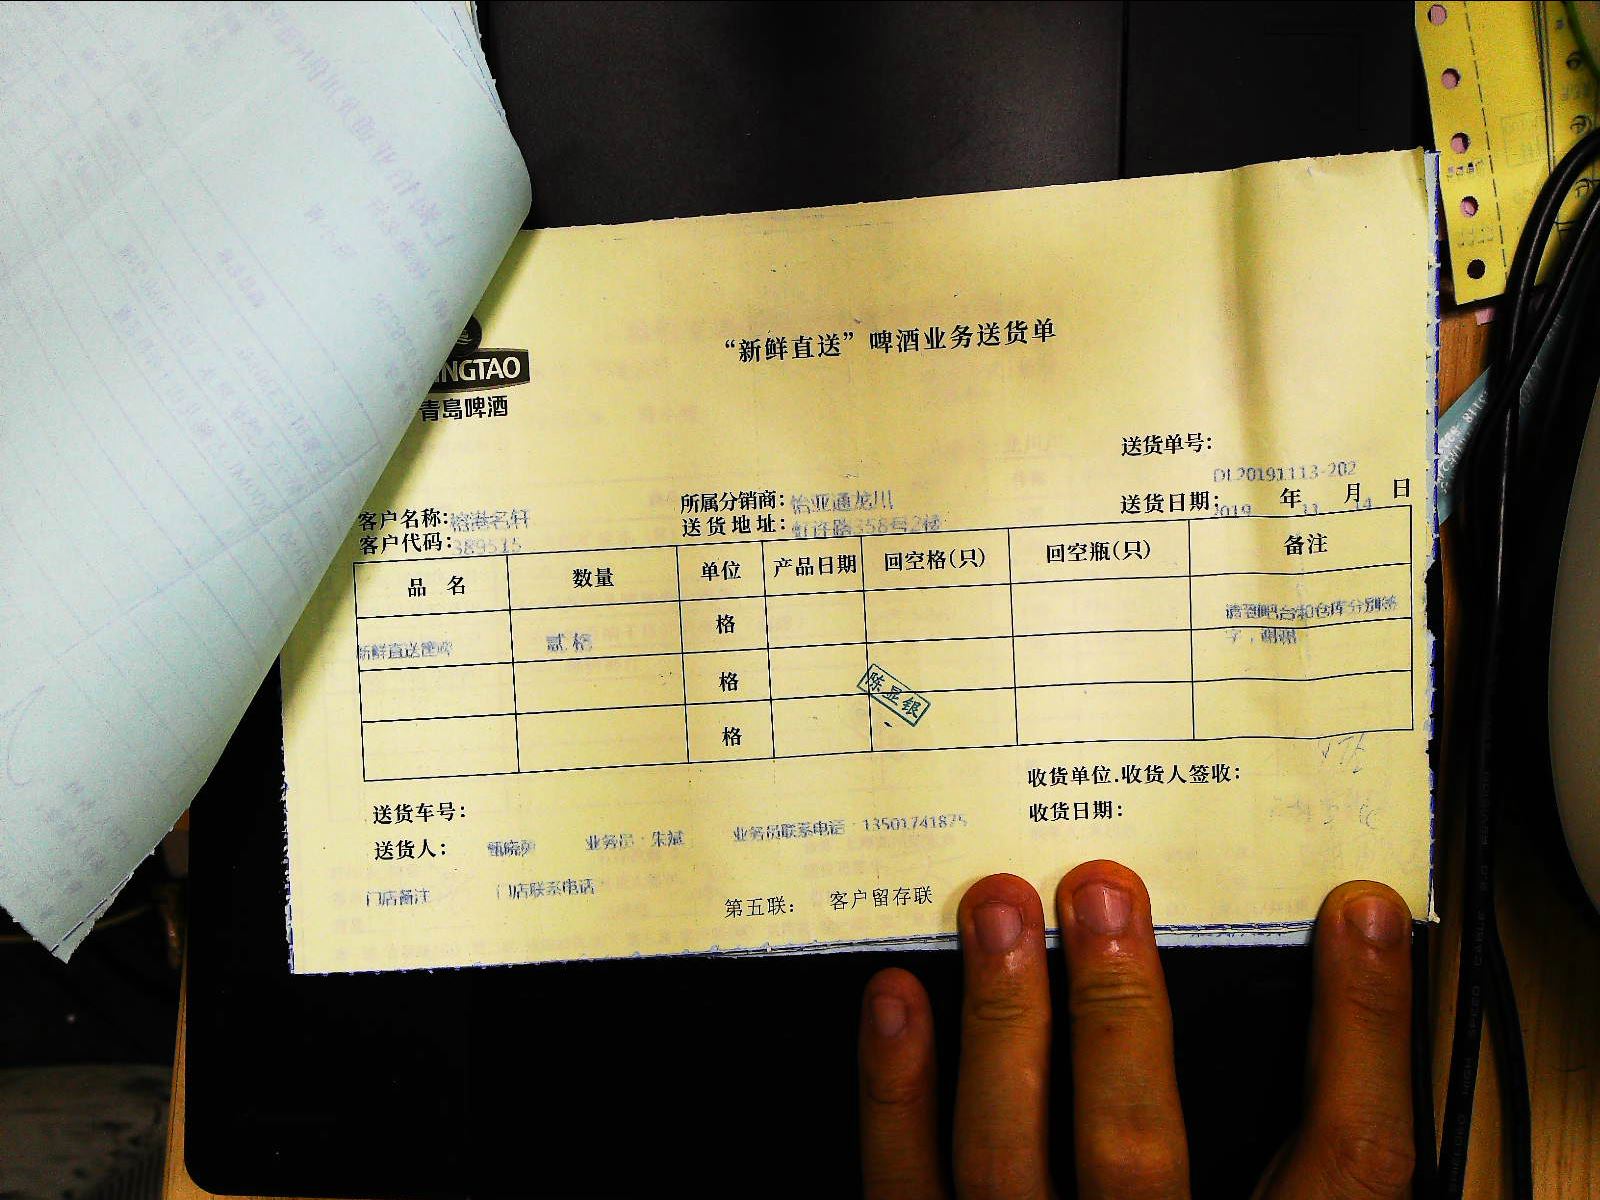 INGTAO
青島啤酒
“新鲜直送”啤酒业务送货单
送货单号：
DL20191113-202
客户名称：榕港名轩
所属分销商：怡亚通龙川
送货日期： 年 月 日
2019 11 14
客户代码：389515
送货地址：虹许路358号2楼
品 名 数量 单位 产品日期 回空格(只) 回空瓶(只) 备注
新鲜直送 贰格 格 请到吧台和仓库分别签
字，谢谢
格
陈显银
格
收货单位.收货人签收：
送货车号：
收货日期：
送货人： 甄晓 业务员：朱斌 业务员联系电话：13501741875
门店备注 门店联系电话
第五联： 客户留存联